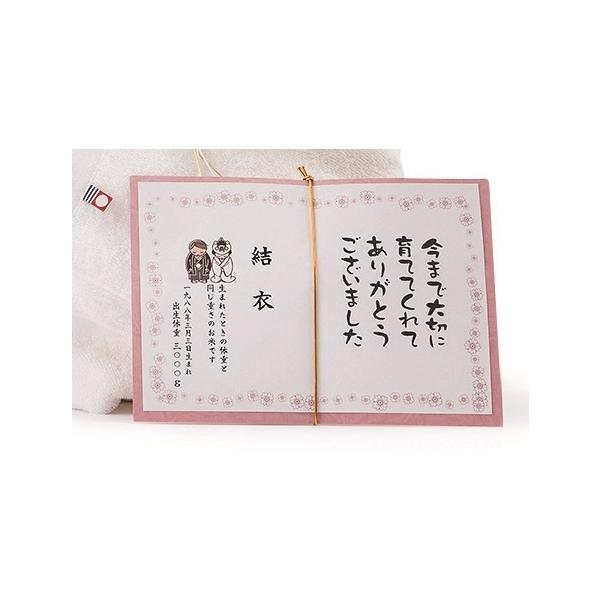 今まで大切に
育ててくれて
ありがとう
ございました
結衣
生まれたときの体重と
同じ重さのお米です
一九八八年三月三日生まれ
出生体重 三〇〇〇g